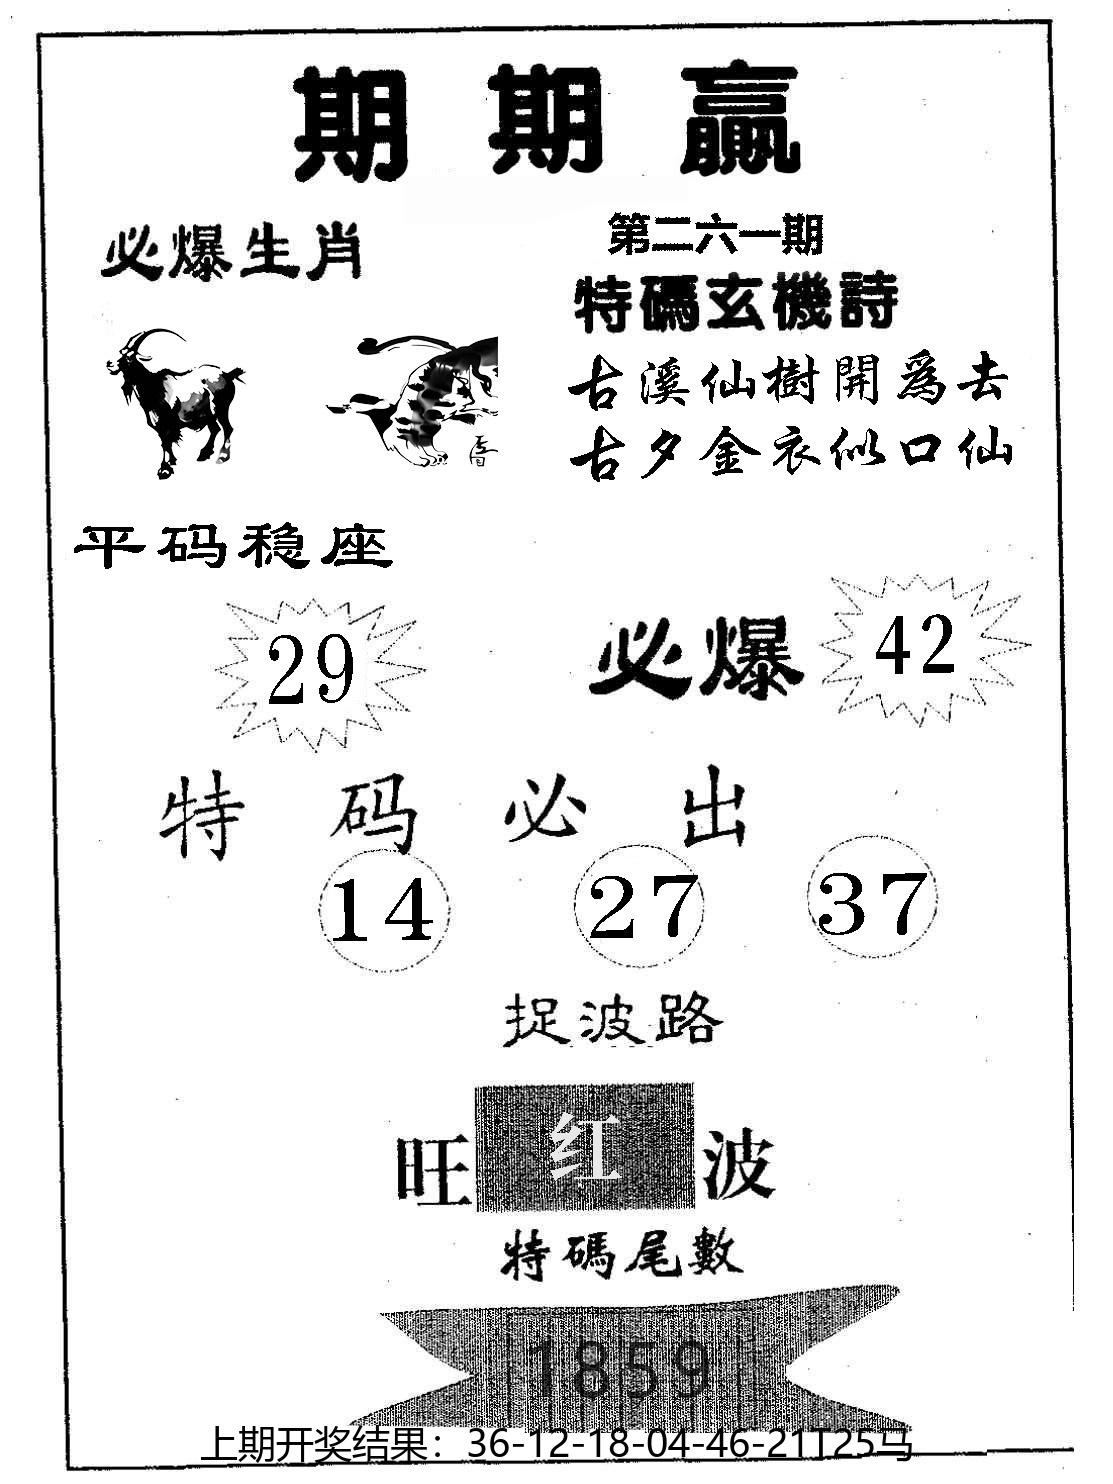 期期赢
必爆生肖
第二六一期
特碼玄機詩
古溪仙樹開爲去
古夕金衣似口仙
平码稳座
29
必爆
42
特码必出
14 27 37
捉波路
旺红波
特碼尾數
1859
上期开奖结果：36-12-18-04-46-21T25马